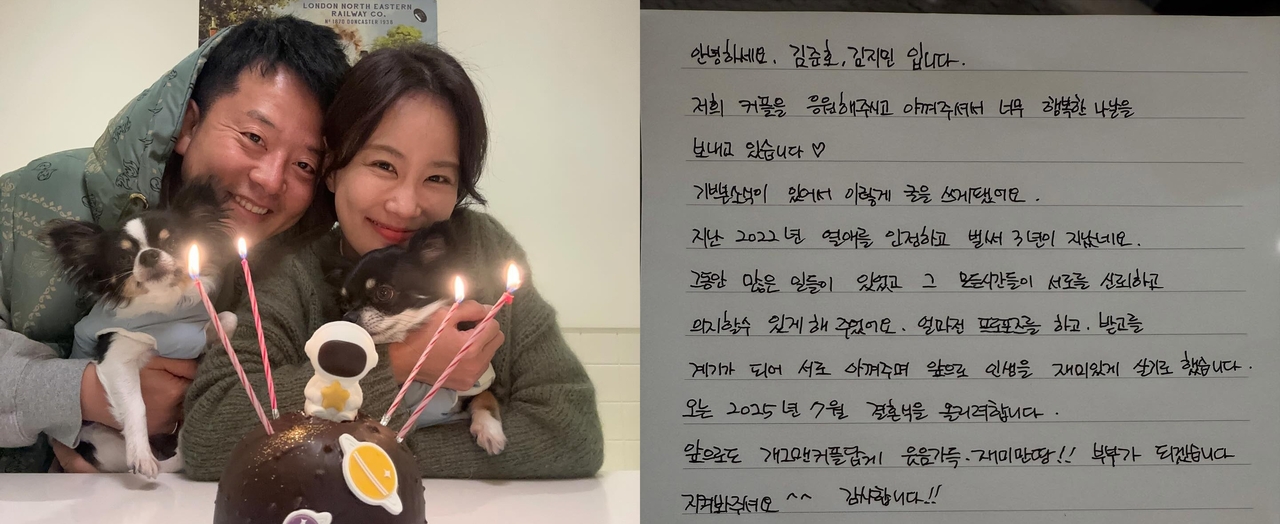 LONDON NORTH EASTERN
RAILWAY CO.
Nº 1870 DONCASTER 1938
안녕하세요. 김준호, 김지민 입니다.
저희 커플을 응원해주시고 아껴주셔서 너무 행복한 나날을
보내고 있습니다 ♡
기쁜소식이 있어서 이렇게 글을 쓰게됐어요.
지난 2022년 열애를 인정하고 벌써 3년이 지났네요.
그동안 많은 일들이 있었고 그 모든시간들이 서로를 신뢰하고
의지할수 있게 해 주었어요. 얼마전 프로포즈를 하고. 받고를
계기가 되어 서로 아껴주며 앞으로 인생을 재미있게 살기로 했습니다.
오는 2025년 7월 결혼식을 올리려합니다.
앞으로도 개그맨커플답게 웃음가득. 재미만땅!! 부부가 되겠습니다
지켜봐주셔요 ^^ 감사합니다!!